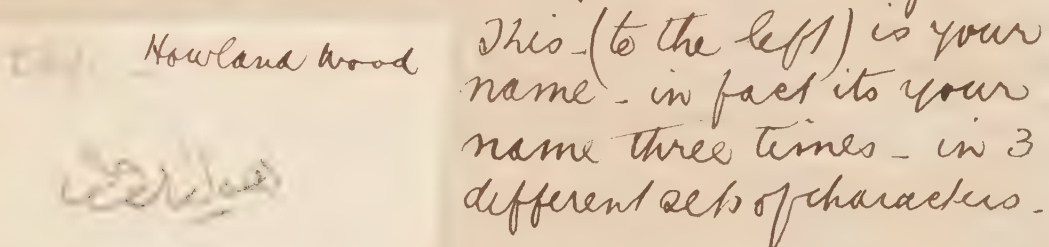 Howland Wood
This - (to the left) is your
name - in fact its your
name three times - in 3
different sets of characters.